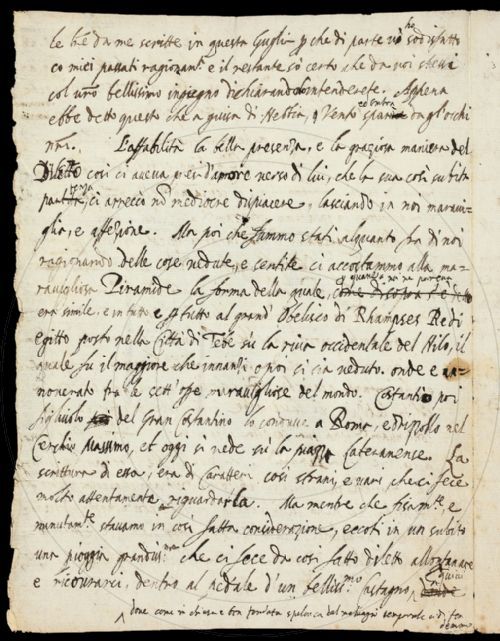 le hò da me scritte in questa Guglia p che di parte vi hò sodisfatto
co miei passati ragionam.ti e il restante sò certo che da voi stessi
col vrō bellissimo ingegno dichiarandolo intenderete. Appena
ebbe detto questo che a guisa di Nebbia, ò Vento sparì dagl'occhi
nrī. L'affabilità la bella presenza, e la graziosa maniera del
Diletto così ci aveva presi d'amore verso di lui, che la sua così subita
partenza, ci arrecò nō mediocre dispiacere, lasciando in noi maravi-
glia, e affezione. Ma poi che fummo stati alquanto fra di noi
ragionando delle cose vedute, e sentite ci accostammo alla ma-
ravigliosa Piramide la forma della quale,
era simile, e in tutto e p tutto al grand' Obelisco di Rhampses Re di
egitto posto nella Città di Tebe sù la riva occidentale del Nilo, il
quale fu il maggiore che innanzi o poi si sia veduto. onde e an-
noverato fra le sett' opere maravigliose del mondo. Costantio poi
figliuolo del Gran Costantino lo condusse a Roma, e drizzollo nel
Cerchio Massimo, et oggi si vede sù la piazza Lateranense. La
scrittura di essa, era di Caratteri così strani, e varj che ci fece
molto attentamente riguardarla. Ma mentre che fisam.te, e
minutam.te stavamo in così fatta considerazione, eccoti in un subito
una pioggia grandiss.ma che ci fece da così fatto diletto allontanare
e ricourarci, dentro al pedale d'un belliss.mo Castagno,
dove come in chiusa e ben fondata spelonca del malvagio temporale ci difen
demmo